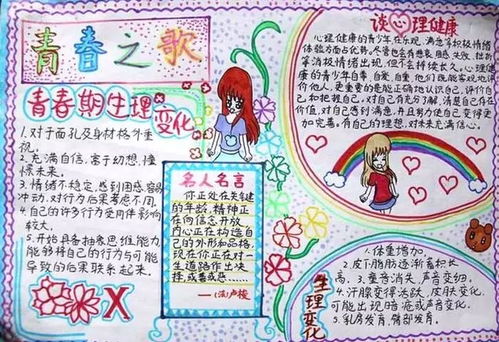 青春之歌
青春期生理
变化
1.对于面孔及身材格外重
视。
2.充满自信,富于幻想,憧
憬未来。
3.情绪不稳定,感到困惑,容易
冲动,对行为后果考虑不周。
4.自己的许多行为受同伴影响
较大。
5.开始具备抽象思维能力
能够将自己的行为与可能
导致的后果联系起来。
X
名人名言
你正处在关键
的年龄,精神正
在向信念开放,
内心正在构造自
己的外形和品格,
现在你正在对一
生道路作出抉
择,或善或恶……
——(法)卢梭
谈心理健康
心理健康的青少年在乐观、满意等积极情绪
体验方面占优势。尽管也会有悲哀、困惑、失败、挫折
等消极情绪出现,但不会持续长久。心理健
康的青少年自尊、自爱、自重,他们既能客观地评
价他人,更重要的是能正确地认识自己,评价自
己和把握自己,对自己有充分了解,清楚自己存在
价值,对自己感到满意,并且努力使自己变得更
加完善,有自己的理想,对未来充满信心。
生理变化
1.体重增加
2.皮下脂肪逐渐表积长
高。3.童音消失,声音变细。
4.汗腺变得活跃,皮肤变化,
可能出现暗疮或声音变化。
5.乳房发育,臀部发育。